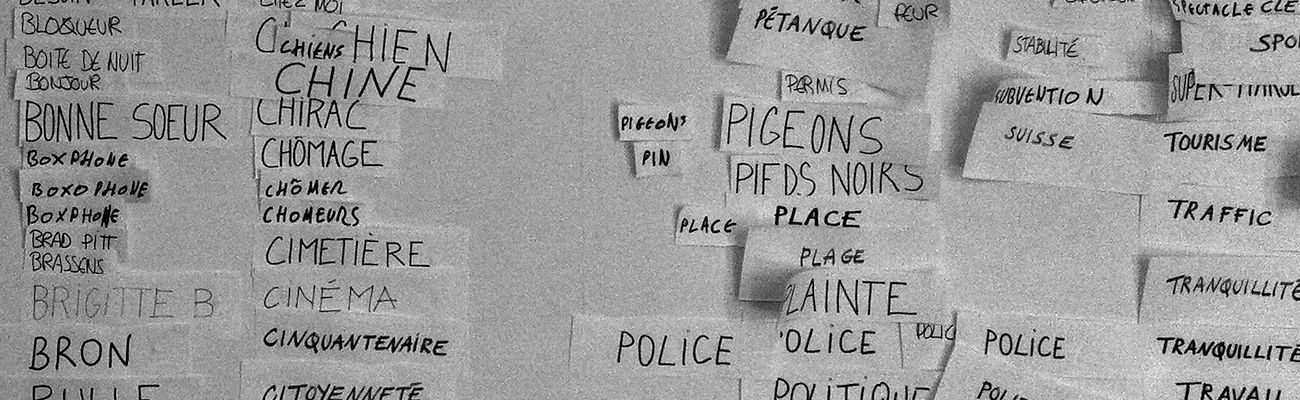 BLOQUEUR
BOITE DE NUIT
BONJOUR
BONNE SOEUR
BOXPHONE
BOXOPHONE
BOXPHONE
BRAD PITT
BRASSENS
BRIGITTE B
BRON
CHEZ MOI
CHIENS
HIEN
CHINE
CHIRAC
CHÔMAGE
CHÔMER
CHOMEURS
CIMETIÈRE
CINÉMA
CINQUANTENAIRE
CITOYENNETÉ
PIGEONS
PIN
PLACE
POLICE
PÉTANQUE
PEUR
PERMIS
PIGEONS
PIEDS NOIRS
PLACE
PLAGE
LAINTE
OLICE
POLIC
POLITIQUE
STABILITÉ
SUBVENTION
SUISSE
POLICE
SPECTACLE
SPO
TOURISME
TRAFFIC
TRANQUILLITÉ
TRANQUILLITÉ
TRAVAIL